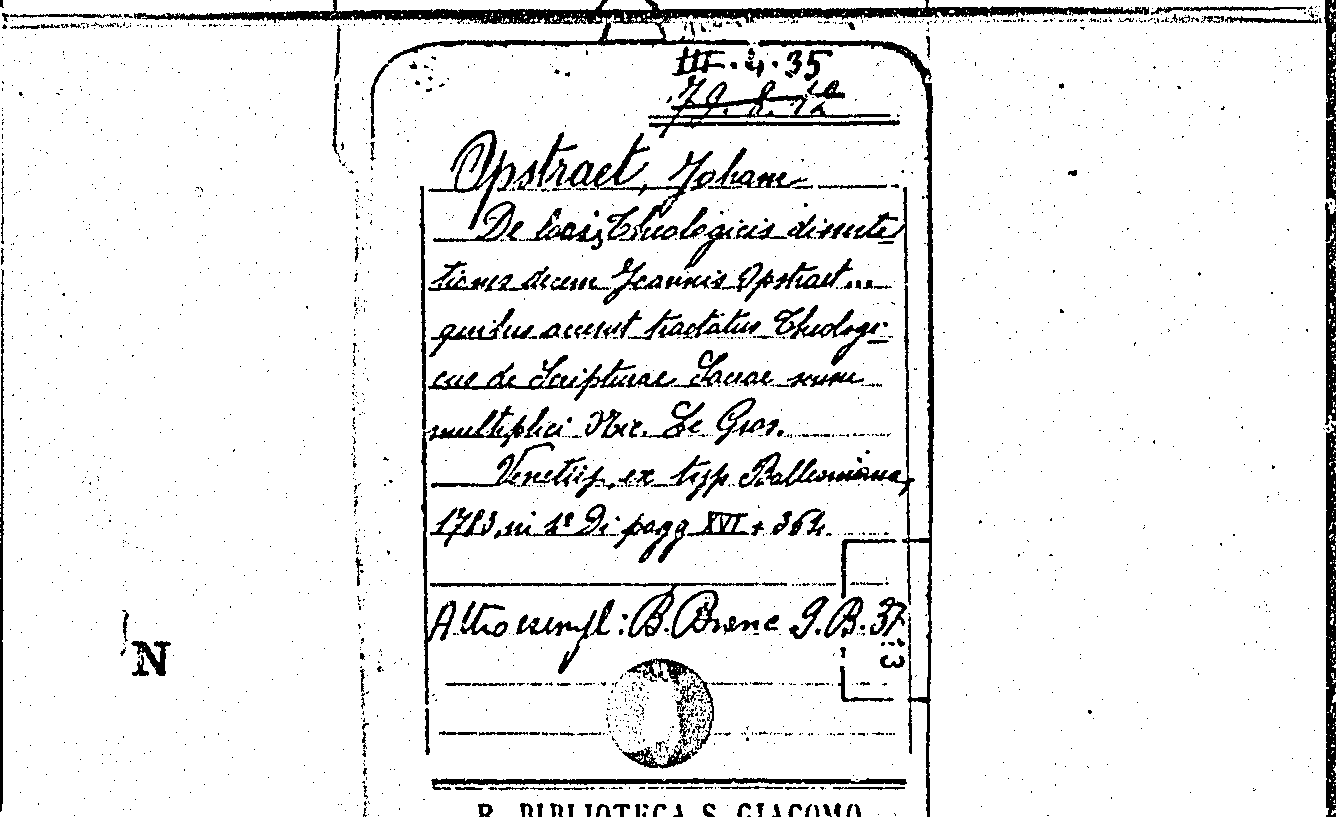 III. 4. 35
79. 8. 12
Opstraet, Johann
De locis Theologicis disserta
tiones decem Joannis Opstraet...
quibus accesit tractatus Theologi-
cus de Scripturae Sacrae sensu
multiplici Nic. Le Gros.
Venetiis, ex typ Balleoniana,
1783, in 4º Di pagg XVI + 364.
Altro esempl: B. Brenc I. B. 37
:3
N
R. BIBLIOTECA S. GIACOMO